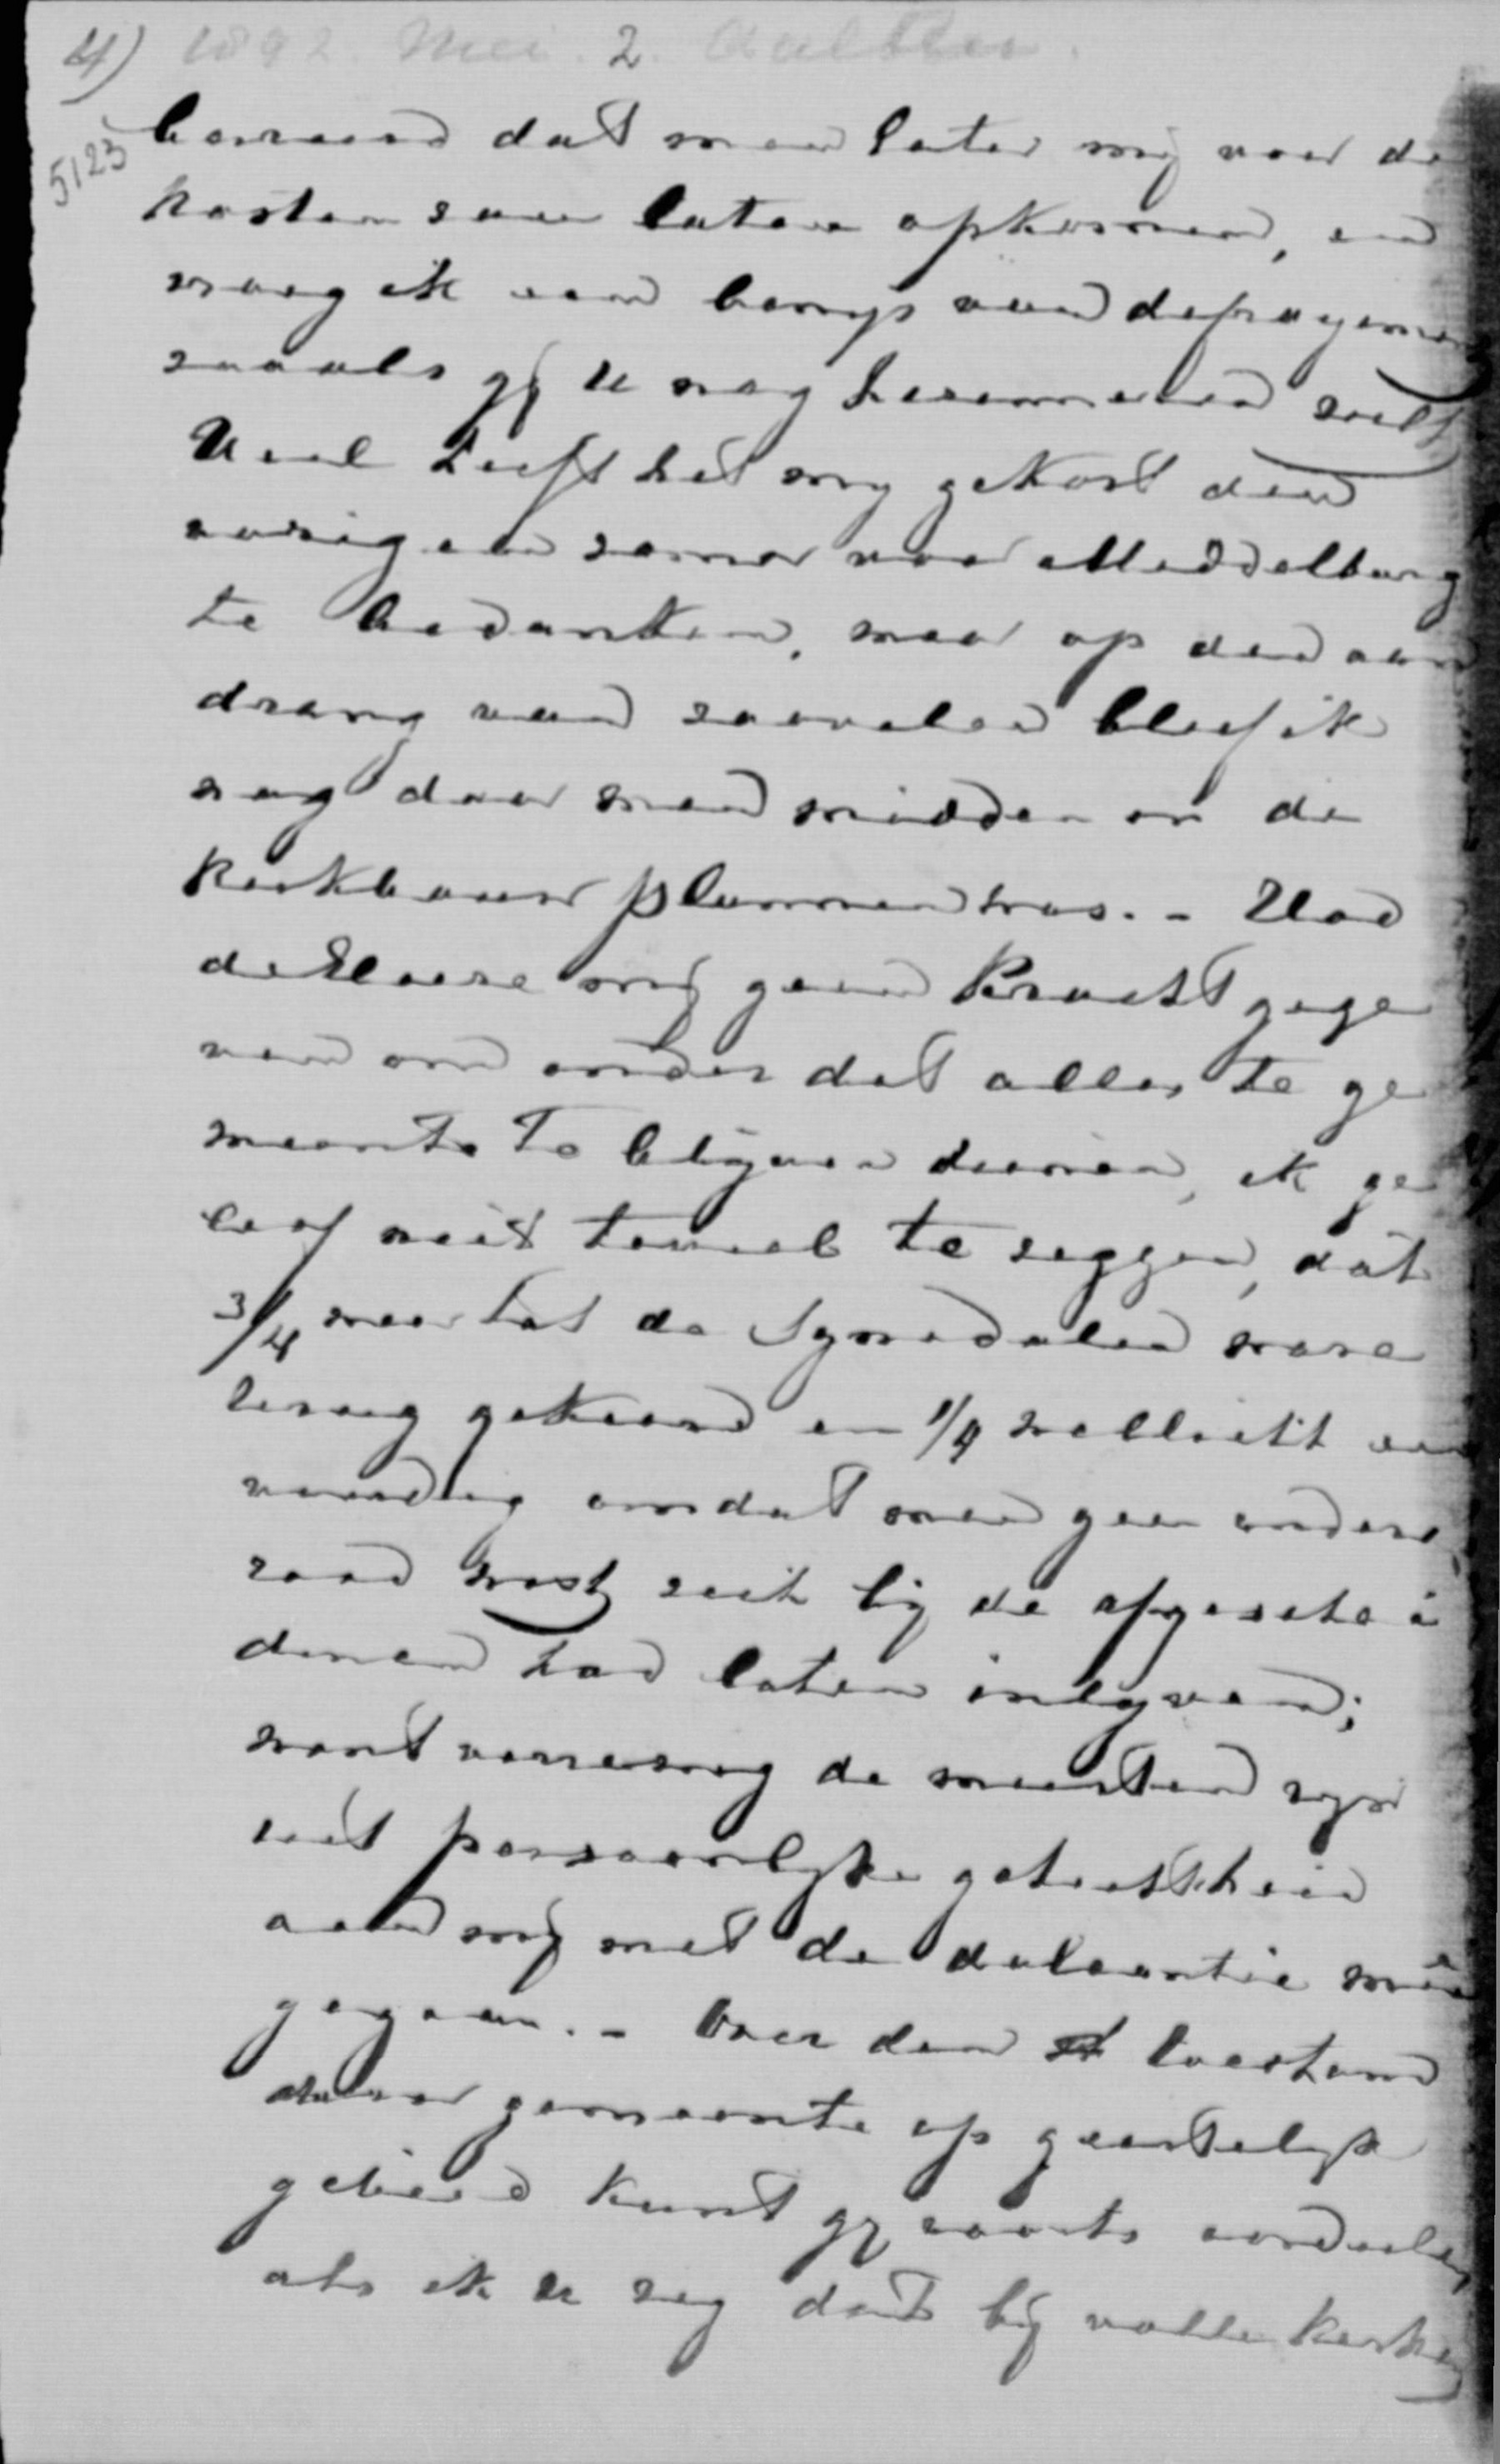 4) 1892. Mei. 2. Aalten.
5123
bevreesd dat men later mij voor de
kosten zou laten opkomen, en
vroeg ik een bewijs van depragement
zooals gij U nog herinneren zult
Veel heeft het mij gekost den
vorigen zomer voor Middelburg
te bedanken, maar op den aan
drang van zoovelen bleef ik
nog daar men midden in de
kerkbouw plannen was. - Had
de Heere mij geen kracht gege
ven om onder dat alles te ge
meente te blijven dienen, ik ge
loof niet teveel te zeggen, dat
3/4 naar de Synodalen ware
terug gekeerd en 1/4 wellicht een
voudig omdat men geen andere
raad wist zich bij de afgescheí
denen had laten inlijven;
want verreweg de meesten zijn
uit persoonlijke gehechtheid
aan mij met de doleantie mêe
gegaan. - Over den toestand
dezer gemeente op geestelijk
gebied kunt gij eenigszins oordeelen
als ik U zeg dat bij volle kerken